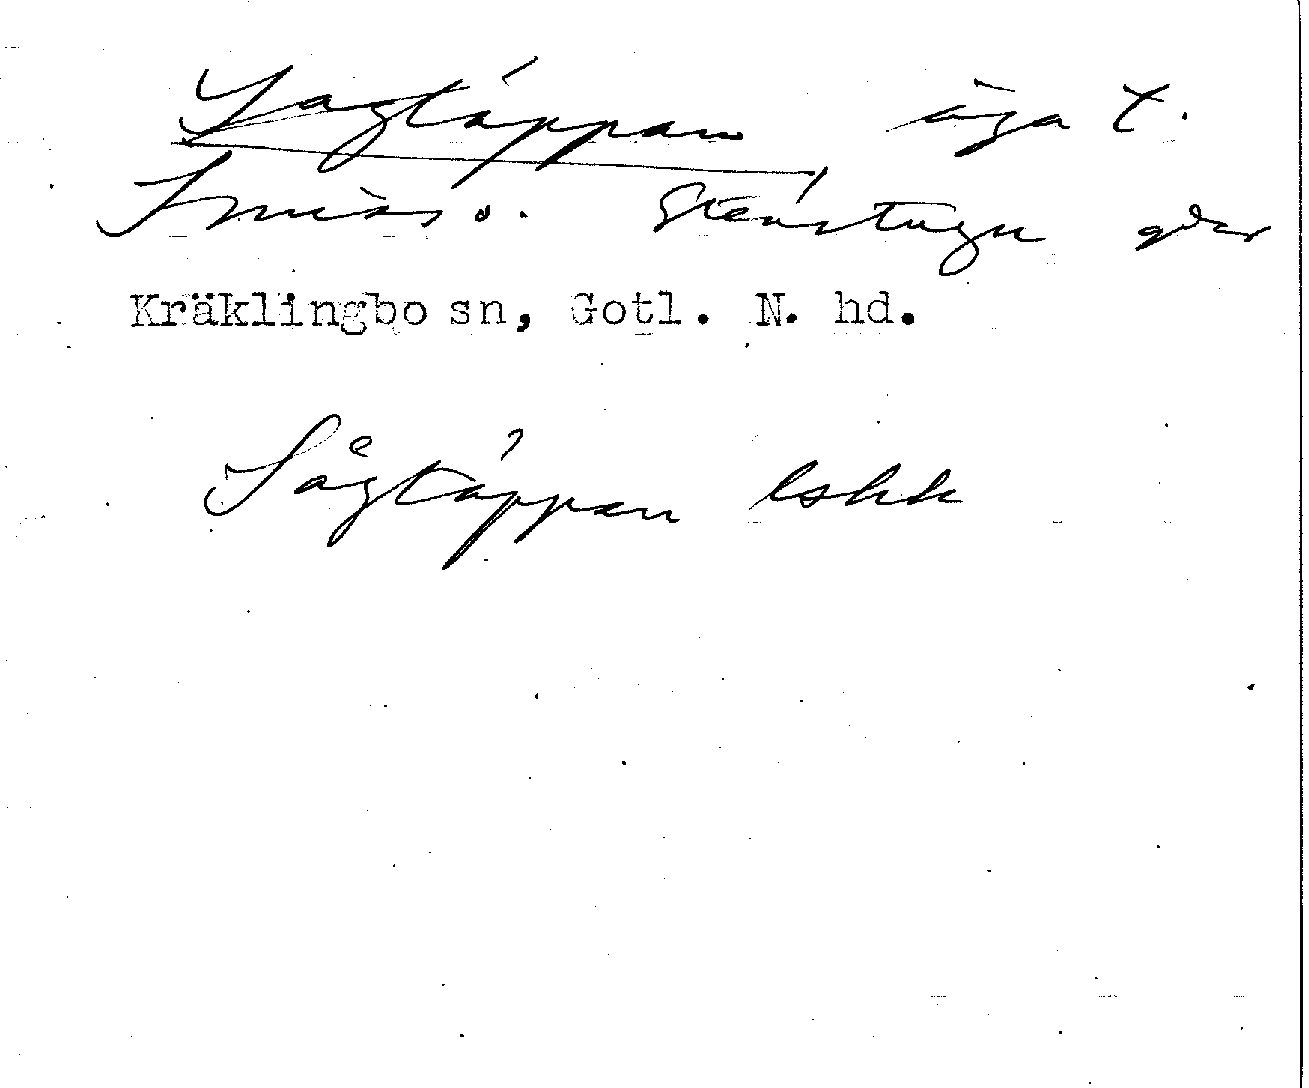 Sagtäppan, äga t.
Smiss o. Stenstugu gdr
Kräklingbo sn, Gotl. N. hd.
Sågtäppan lskk